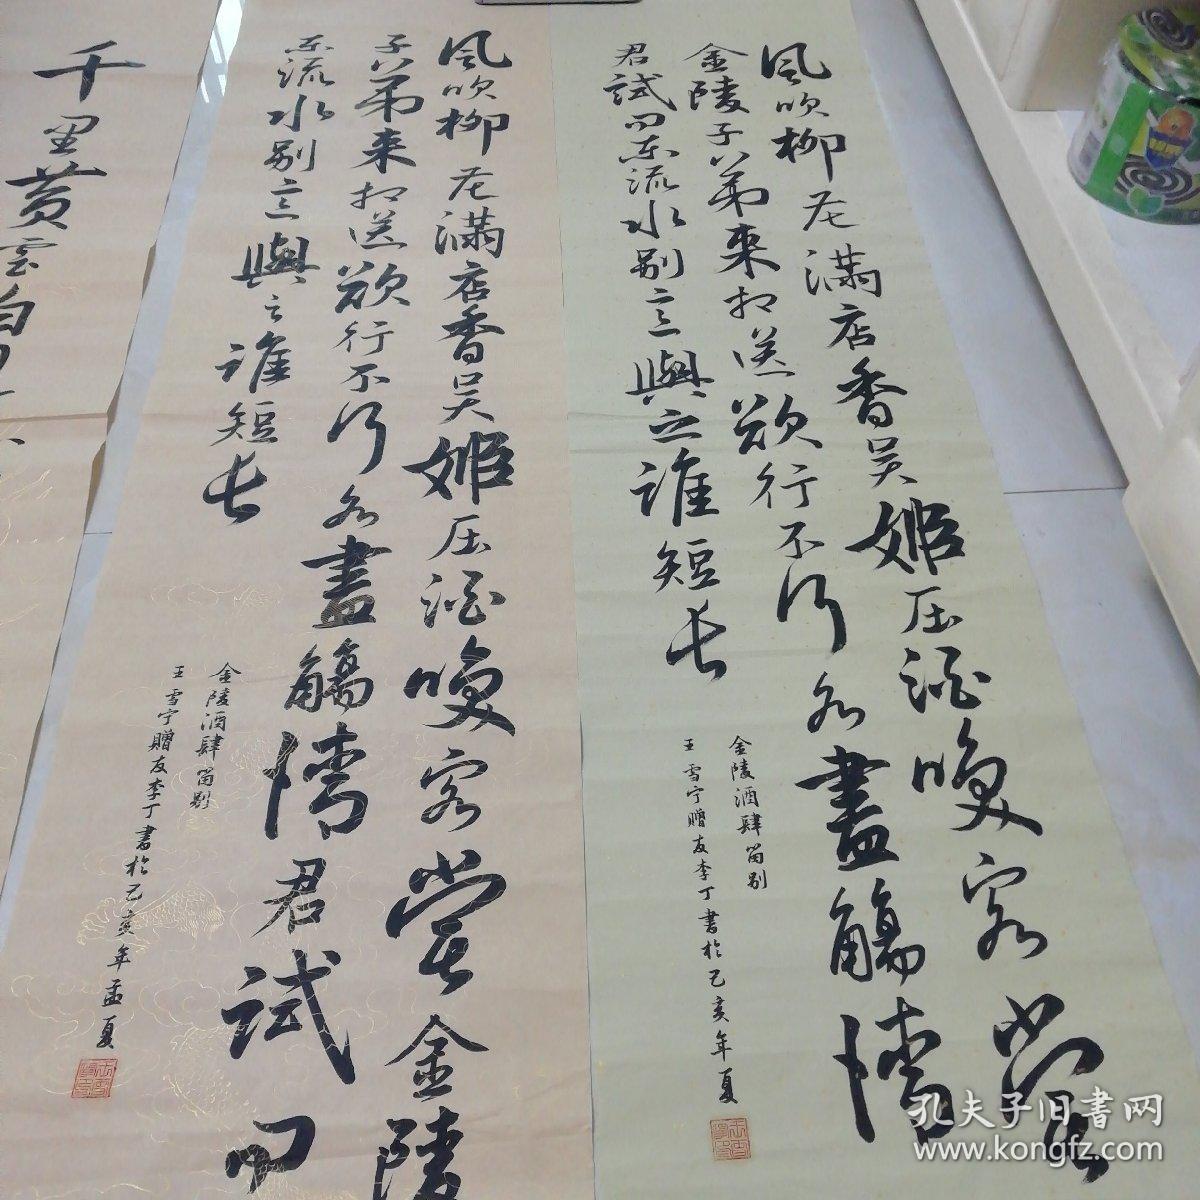 风吹柳花满店香吴姬压酒唤客尝
金陵子弟来相送欲行不行各尽觞请
君试问东流水别意与之谁短长
金陵酒肆留别
王雪宁赠友李丁书於己亥年夏
风吹柳花满店香吴姬压酒唤客尝金陵
子弟来相送欲行不行各盡觴请君试问
东流水别意與之谁短长
金陵酒肆留别
王雪宁赠友李丁書於己亥年孟夏
千里黄雲白
孔夫子旧书网
www.kongfz.com